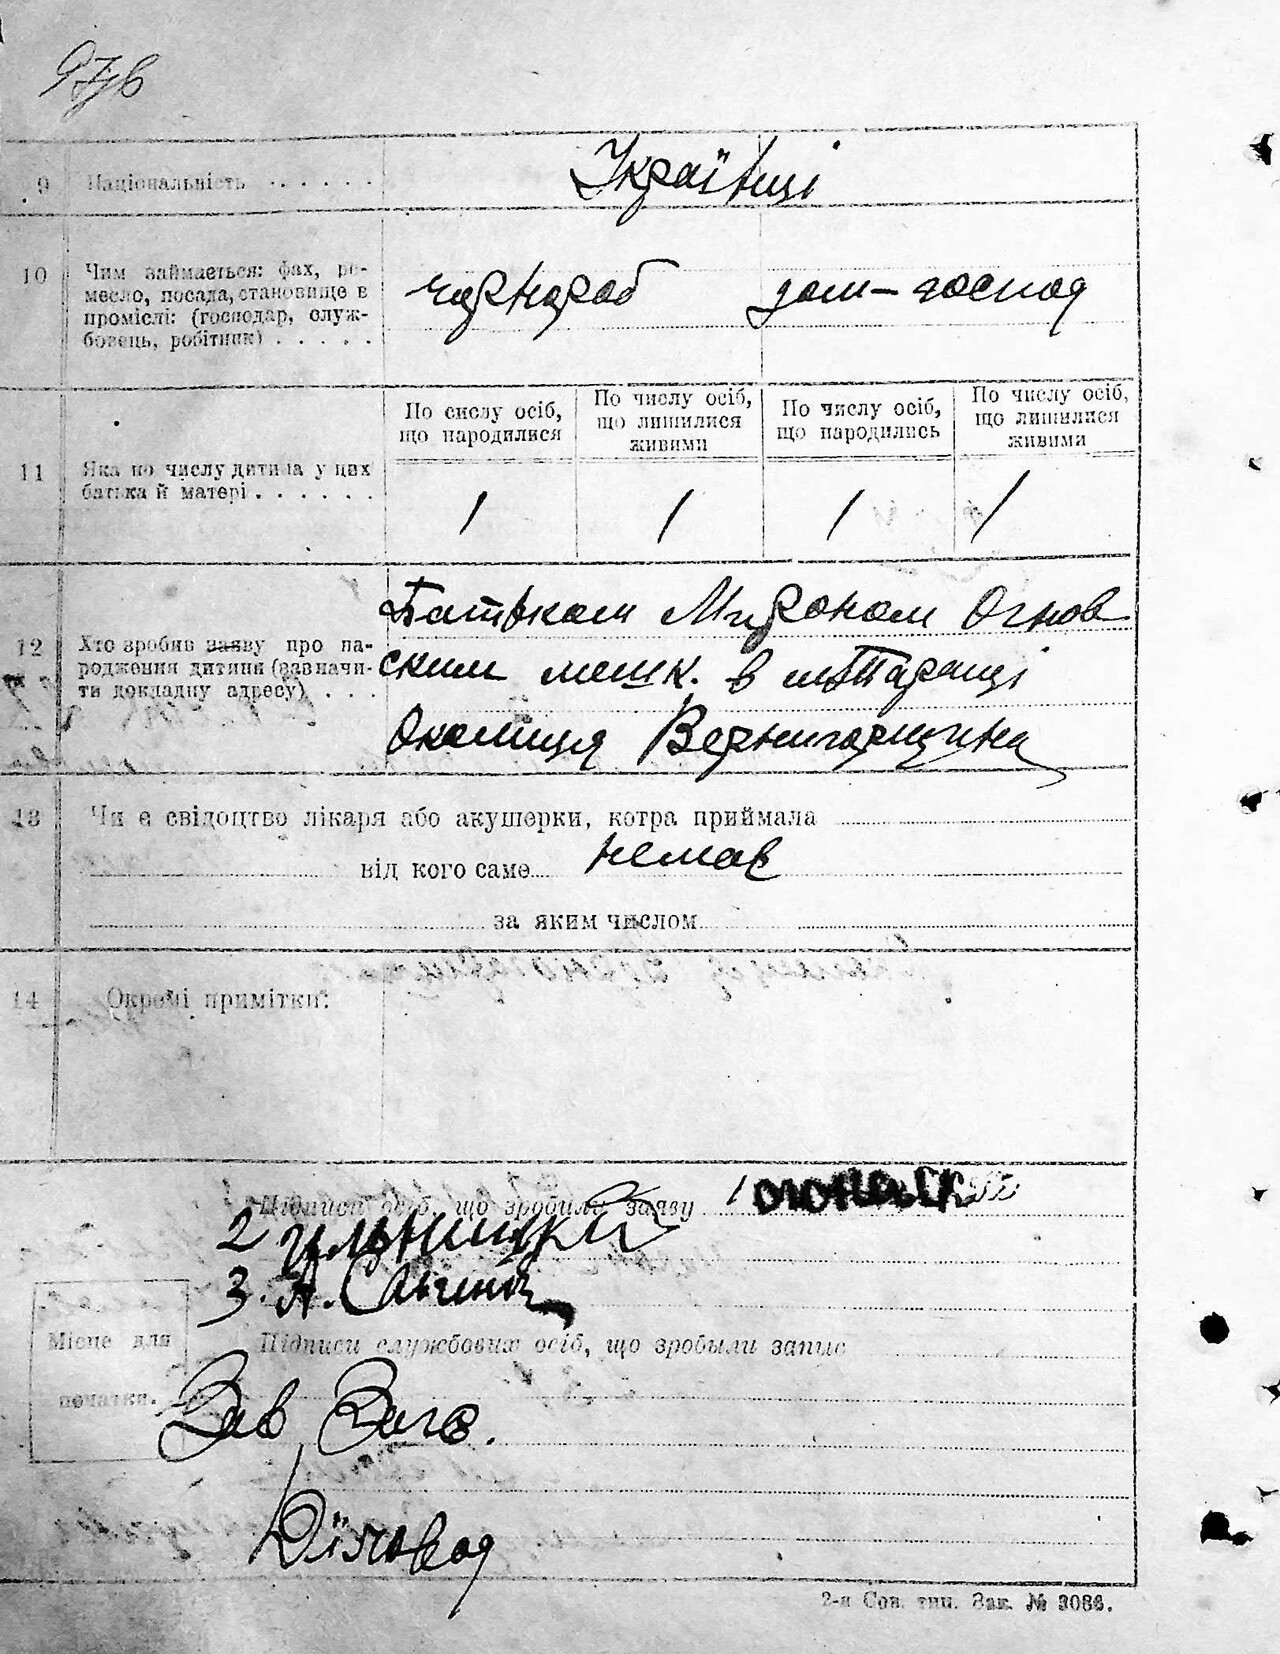 97 зв
9 Національність . . . . . . Українці
10 Чим займається: фах, ре-
месло, посада, становище в
проміслі: (господар, служ-
бовець, робітник) . . . . .
чорнороб дом–господ
По числу осіб, що народилися
По числу осіб, що лишилися живими
По числу осіб, що народились
По числу осіб, що лишилися живими
11 Яка по числу дитина у цих
батька й матері . . . . . .
1 1 1 1
12 Хто зробив заяву про на-
родження дитини (зазначи-
ти докладну адресу) . . .
Батьком Мироном Огнов
ским мешк. в м. Таращі
Околиця Вернигорщина
13 Чи є свідоцтво лікаря або акушерки, котра приймала
від кого саме немає
за яким числом
14 Окремі примітки:
Підписи осіб, що зробили заяву 1
2
3. А.
Місце для
печатки.
Підписи службових осіб, що зробыли запис
Зав Загс.
Діловод
2-я Сов. тип. Зак. № 3086.